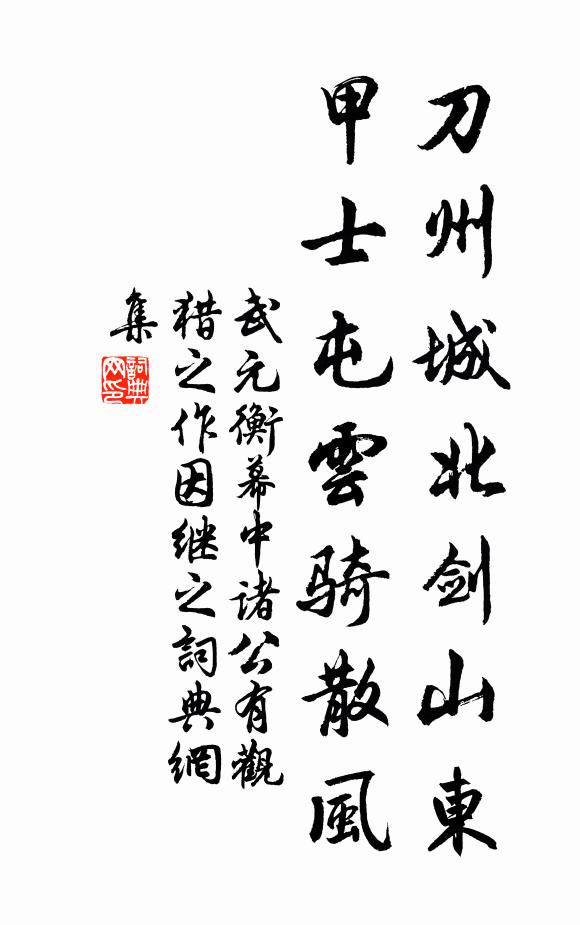 刀州城北剑山東
甲士屯雲骑散風
武元衡幕中诸公有觀
猎之作因继之詞典網
集
詞典
网印